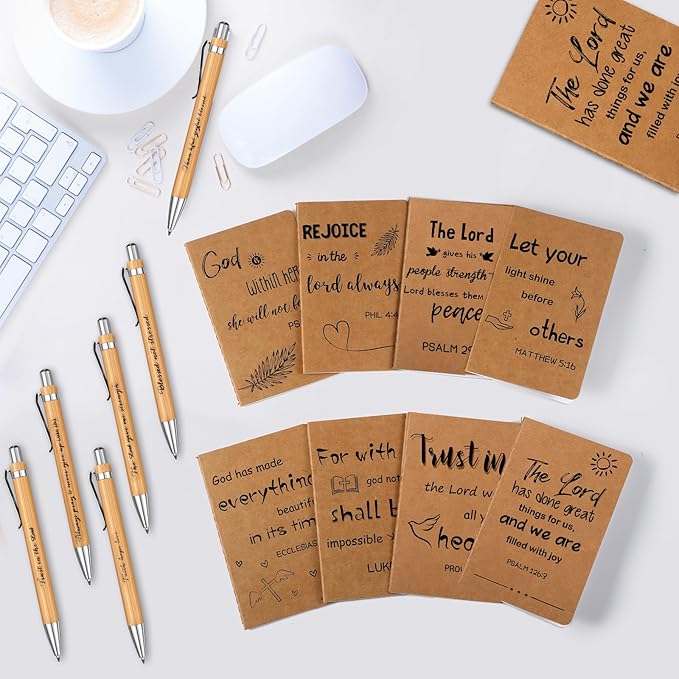 The Lord
has done great
things for us,
and we are
filled with joy
God is
within her
she will not
PS
REJOICE
in the
lord always
PHIL 4:4
The Lord
gives his
people strength
Lord blesses them
peace
PSALM 29
Let your
light shine
before
others
MATTHEW 5:16
God has made
everything
beautiful
in its time
ECCLESIAS
For with
god not
shall b
impossible
LUK
Trust in
the Lord w
all y
hea
PROV
The Lord
has done great
things for us,
and we are
filled with joy
PSALM 126:3
Blessed not stressed
Trust in the Lord